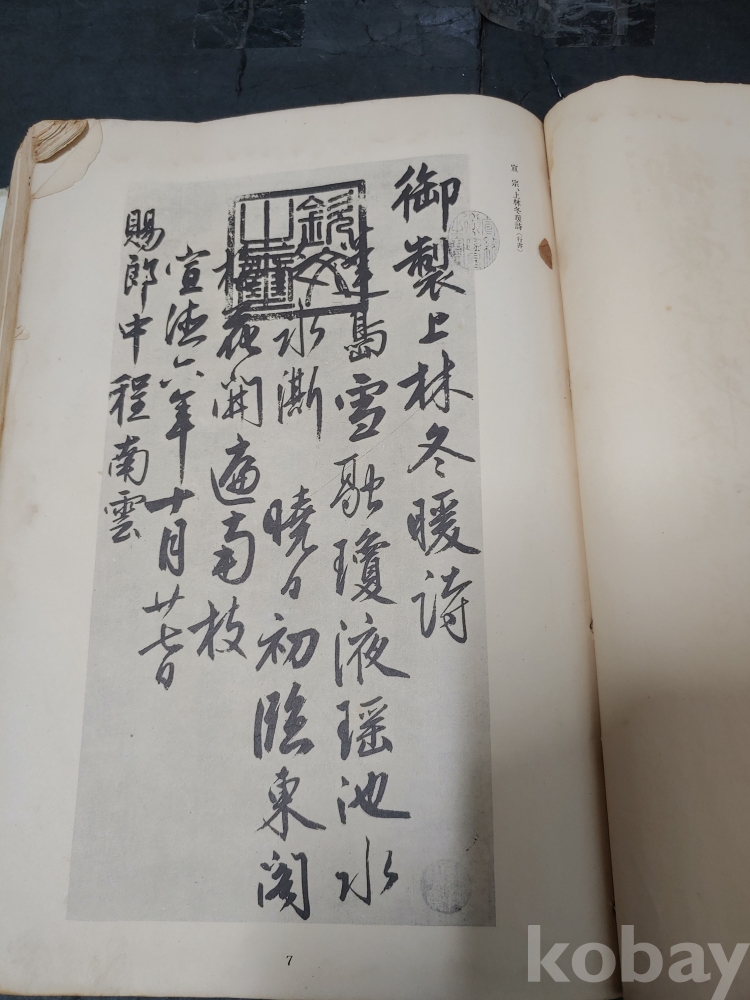 宣 宗、上林冬暖詩(行書)
御製上林冬暖詩
蓬島雪融瓊液瑶池水
氷澌 曉日初臨東閣
梅花開遍南枝
宣德六年十月廿七日
賜郎中程南雲
欽文之璽
7
kobay